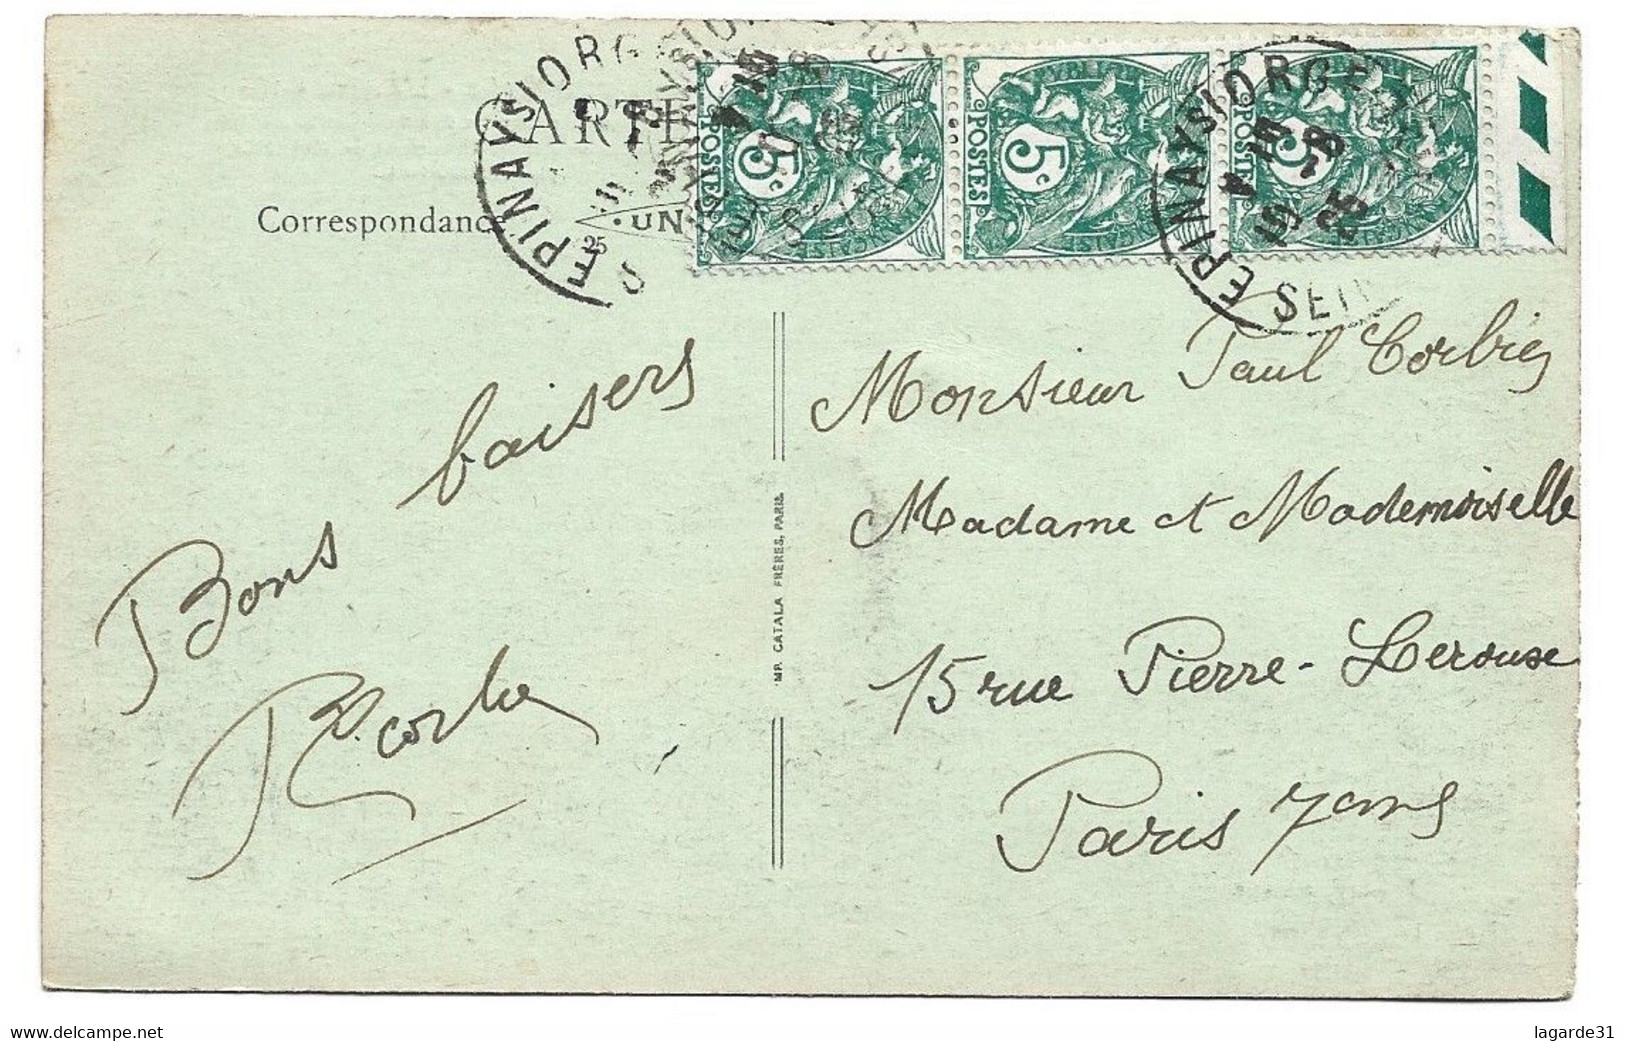 ARTE
Correspondance
UN
25
EPINAY S/ ORGE
SEIN
15
19 -8
25
POSTES 5c
POSTES 5c
POSTES 5c
Bons baisers
P. Corbe
IMP. CATALA FRÈRES, PARIS
Monsieur Paul Corbie
Madame et Mademoiselle
15 rue Pierre-Lerouse
Paris 7ème
www.delcampe.net
lagarde31